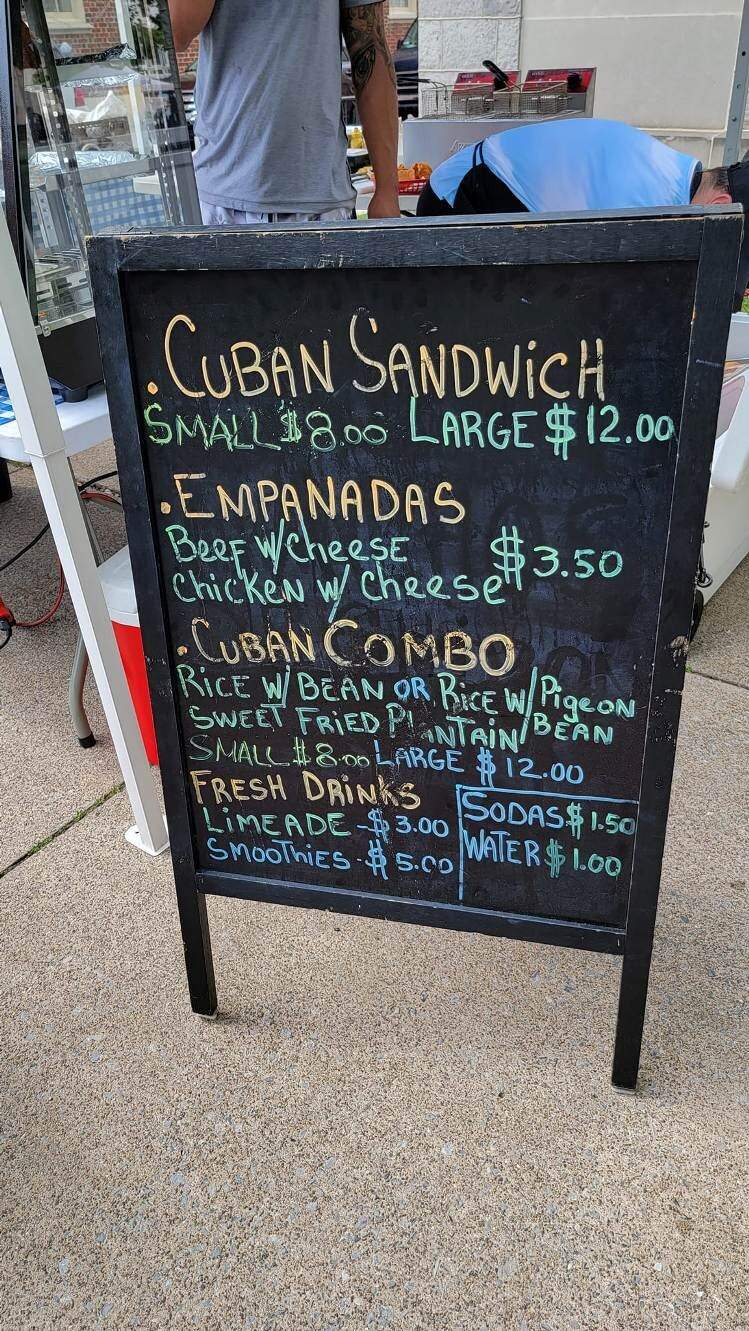 .CUBAN SANDWiCH
SMALL $8.00 LARGE $12.00
.EMPANADAS
BeeF W/CheeSE $3.50
ChicKeN w/ Cheese
.CUBAN COMBO
RiCE W/ BEAN OR RiCE W/ PigeoN
SWEET FRiED PLANTAiN / BEAN
SMALL $8.00 LARGE $12.00
FRESH DRiNKS
LiMEADE -$3.00
SMOOThiES -$5.00
SODAS $1.50
WATER $1.00